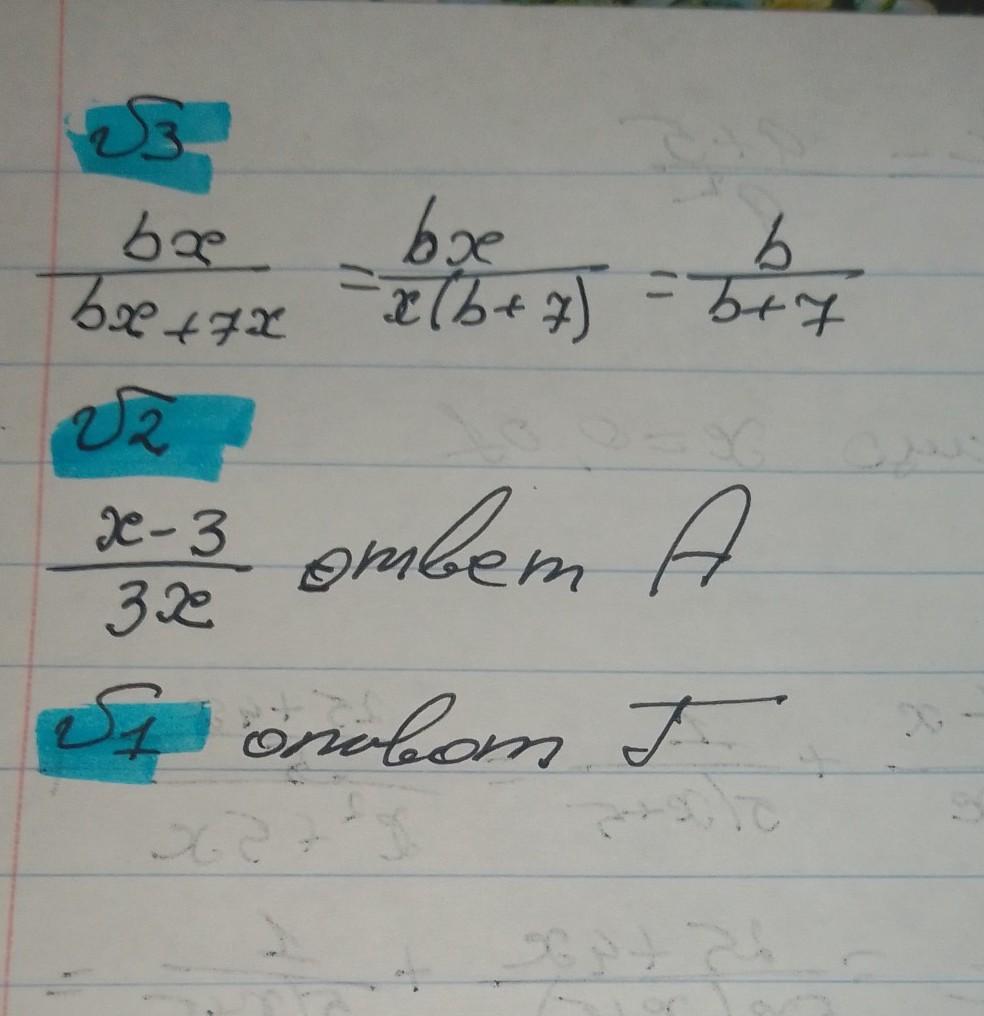 √3
bx/(bx+7x) = bx/(x(b+7)) = b/(b+7)
√2
(x-3)/(3x) ответ А
√1 ответ Г